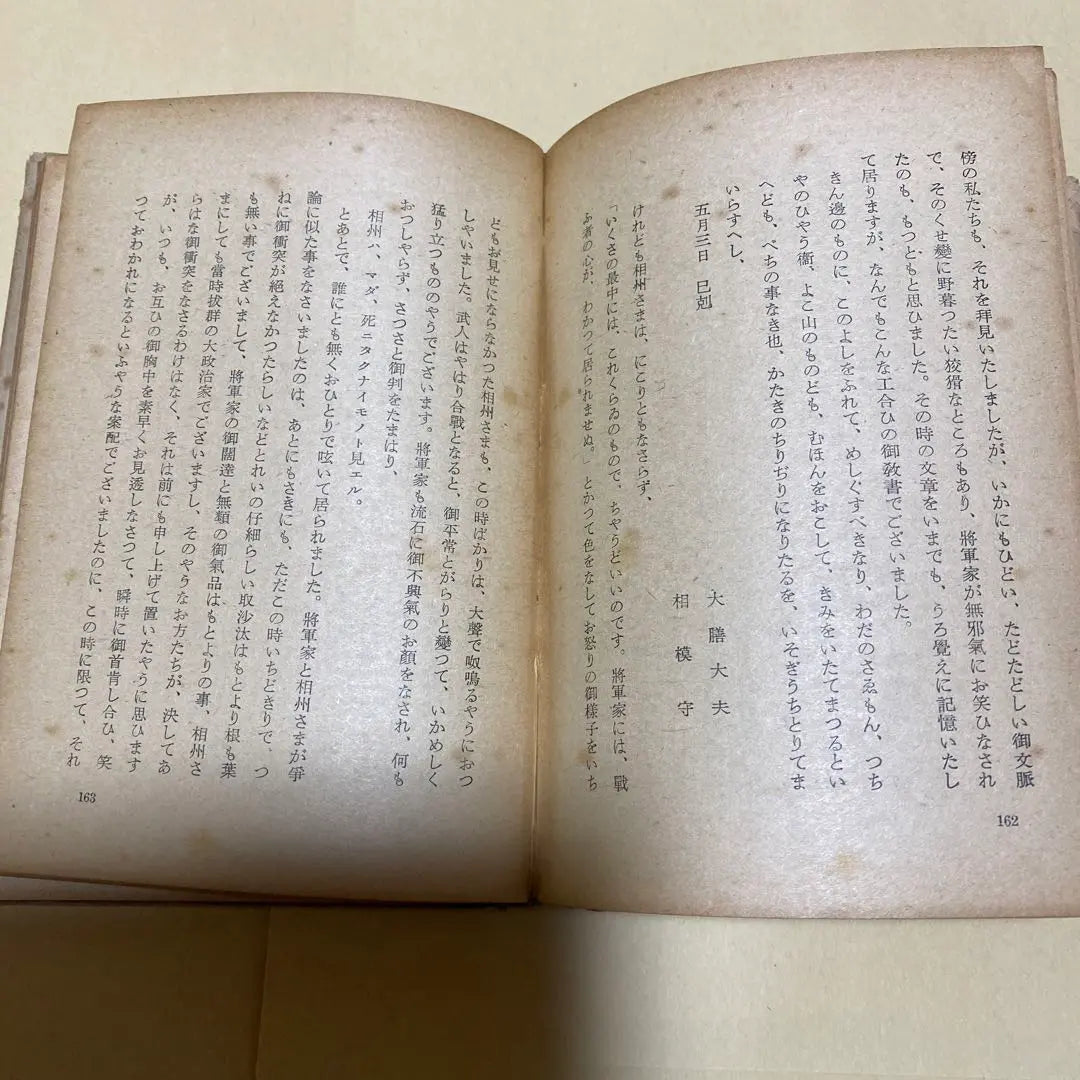 傍の私たちも、それを拜見いたしましたが、いかにもひどい、たどたどしい御文脈
で、そのくせ變に野暮つたい狡猾なところもあり、將軍家が無邪氣にお笑ひなされ
たのも、もつともと思ひました。その時の文章をいまでも、うろ覺えに記憶いたし
て居りますが、なんでもこんな工合ひの御敎書でございました。
きん邊のものに、このよしをふれて、めしぐすべきなり、わだのさゑもん、つち
やのひやう衞、よこ山のものども、むほんをおこして、きみをいたてまつるとい
へども、べちの事なき也、かたきのちりぢりになりたるを、いそぎうちとりてま
いらすへし、
五月三日　巳剋
大膳大夫
相模守
けれども相州さまは、にこりともなさらず、
「いくさの最中には、これくらゐのもので、ちやうどいいのです。將軍家には、戰
ふ者の心が、わかつて居られませぬ。」とかつて色をなしてお怒りの御樣子をいち
ともお見せにならなかつた相州さまも、この時ばかりは、大聲で呶鳴るやうにおつ
しやいました。武人はやはり合戰となると、御平常とがらりと變つて、いかめしく
猛り立つもののやうでございます。將軍家も流石に御不興氣のお顏をなされ、何も
おつしやらず、さつさと御判をたまはり、
相州ハ、マダ、死ニタクナイモノト見エル。
とあとで、誰にとも無くおひとりで呟いて居られました。將軍家と相州さまが爭
論に似た事をなさいましたのは、あとにもさきにも、ただこの時いちどきりで、つ
ねに御衝突が絶えなかつたらしいなどとれいの仔細らしい取沙汰はもとより根も葉
も無い事でございまして、將軍家の御闊達と無類の御氣品はもとよりの事、相州さ
まにしても當時拔群の大政治家でございますし、そのやうなお方たちが、決してあ
らはな御衝突をなさるわけはなく、それは前にも申し上げて置いたやうに思ひます
が、いつも、お互ひの御胸中を素早くお見透しなさつて、瞬時に御首肯し合ひ、笑
つておわかれになるといふやうな案配でございましたのに、この時に限つて、それ
162
163